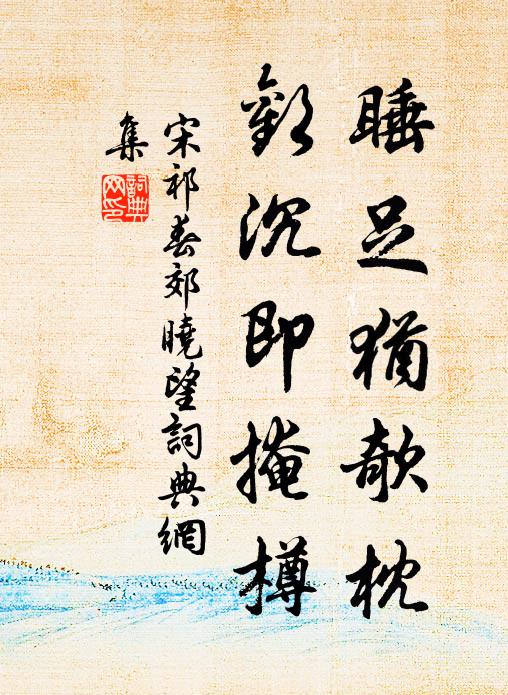 睡足猶欹枕
歡沉即掩樽
宋祁春郊曉望詞典網
集
詞典網印